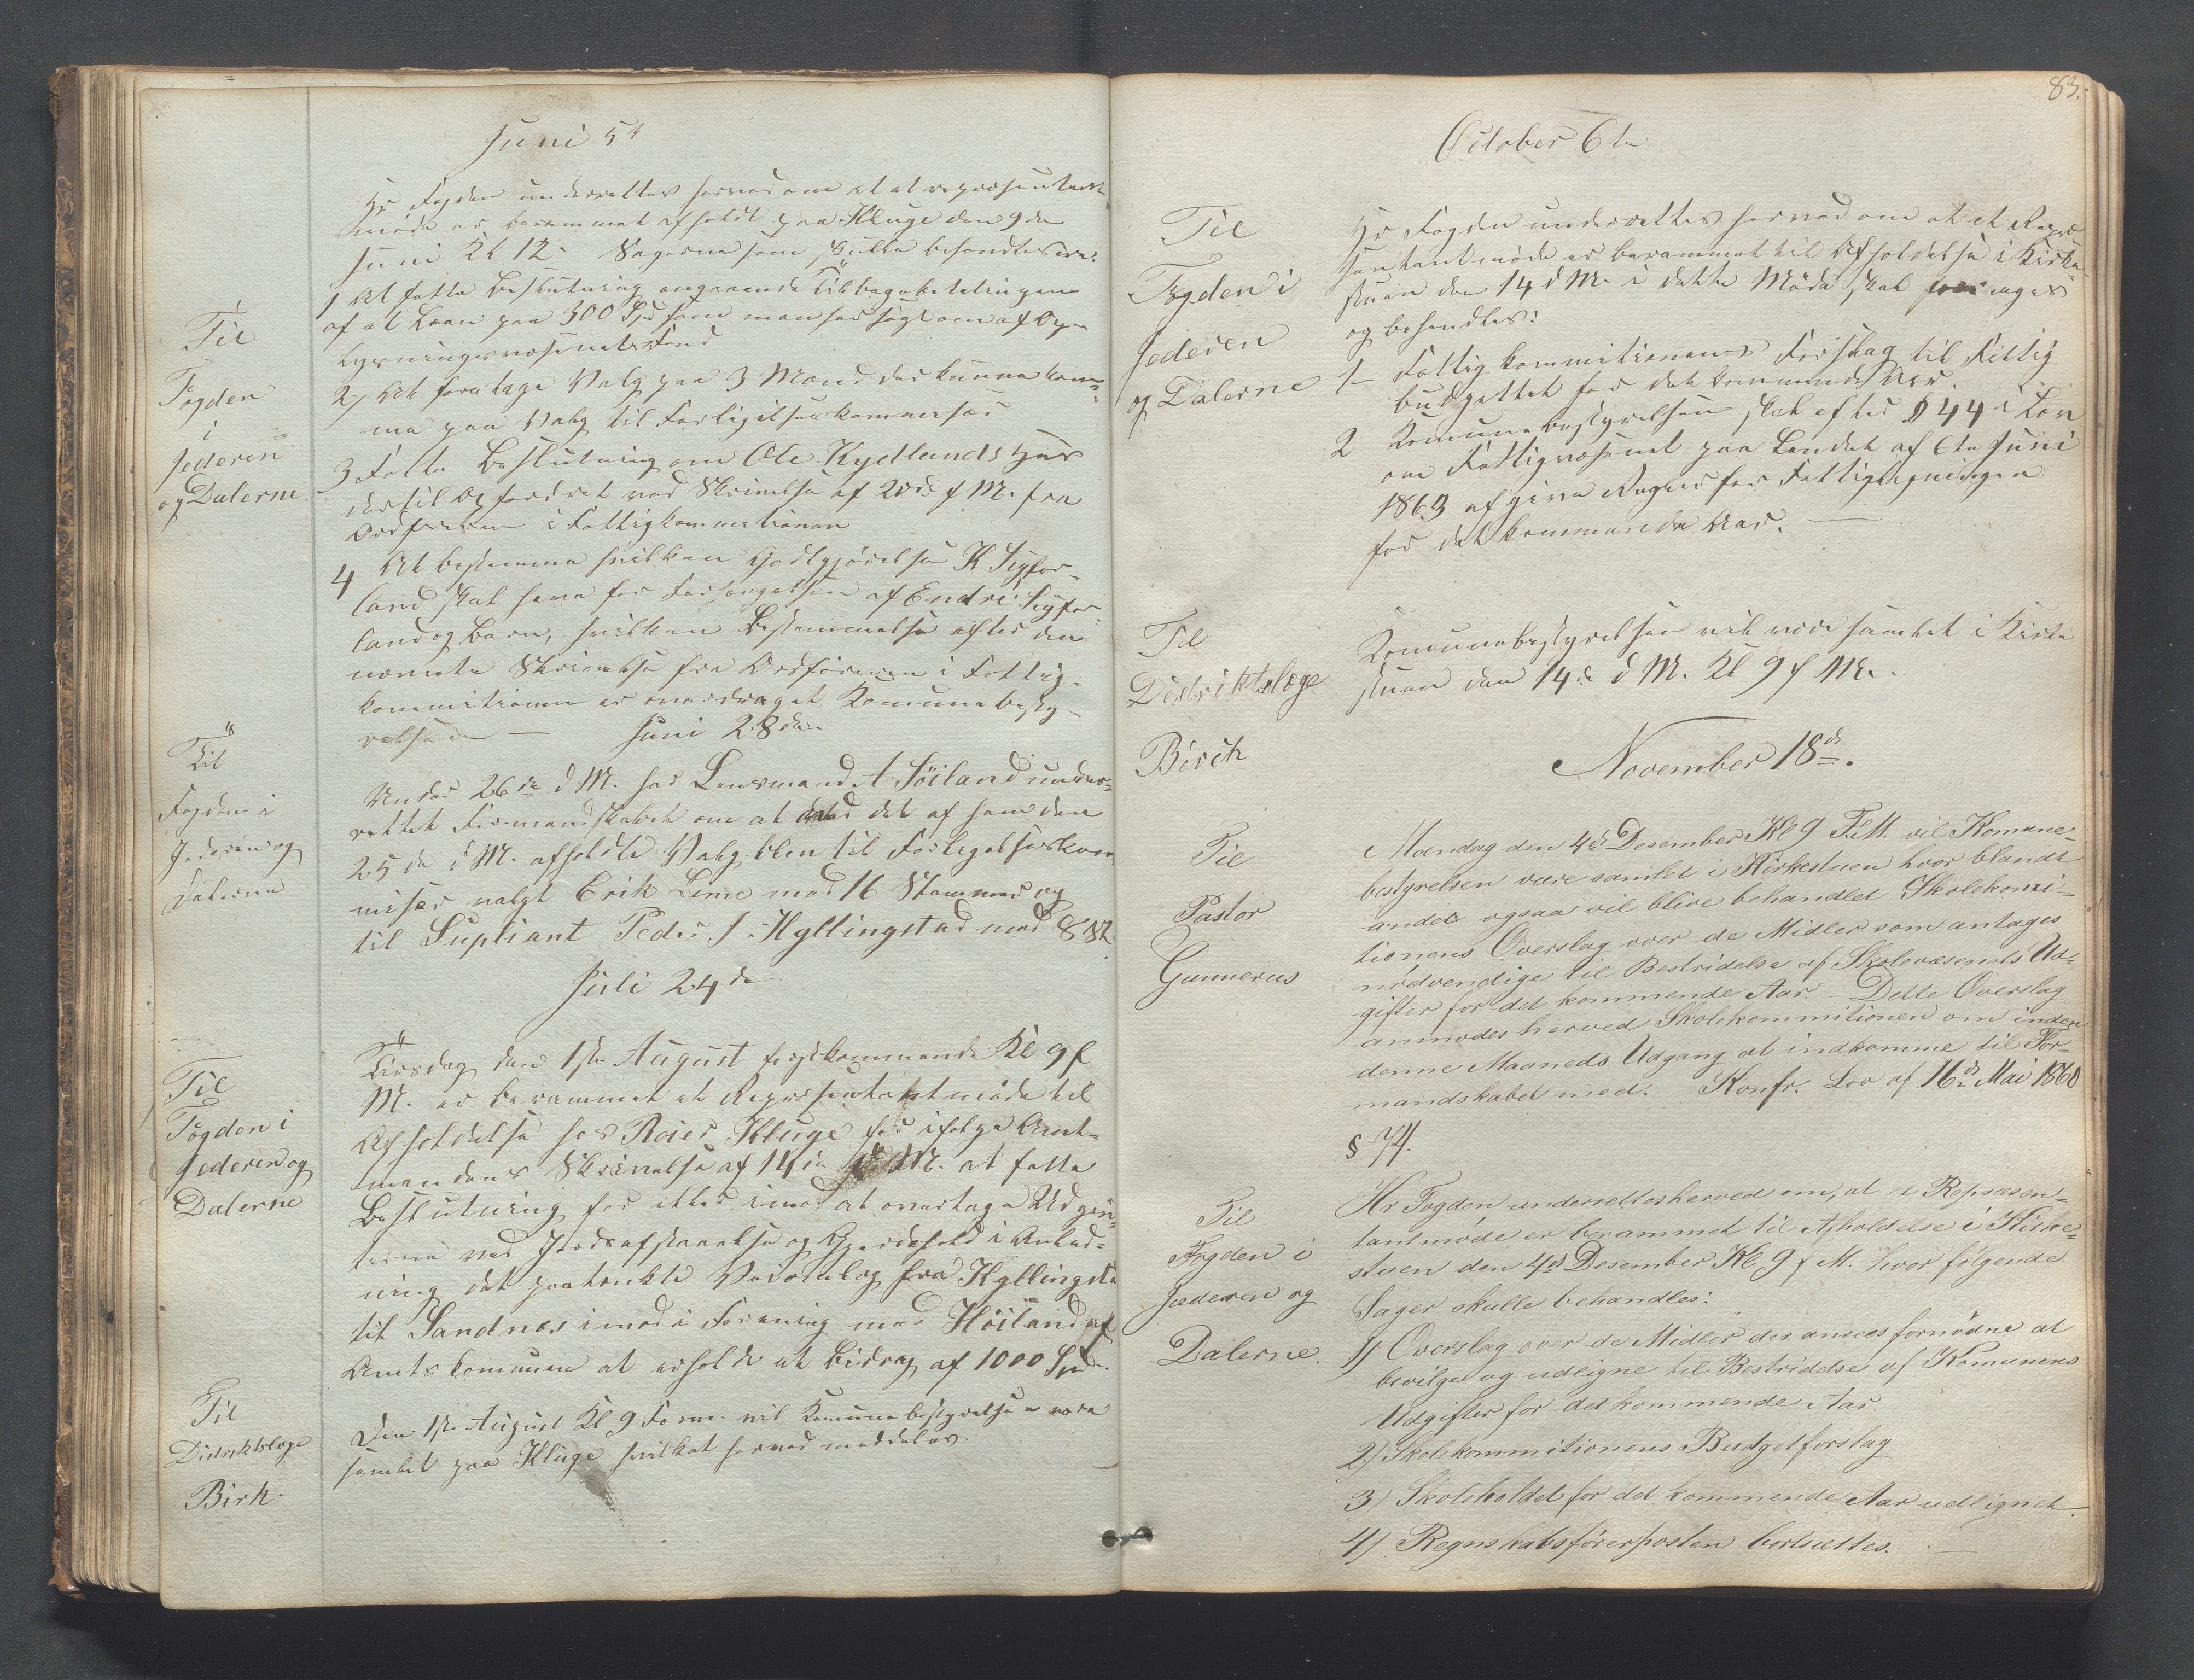 Juni 5t
Til
Fogden
i
Jederen
og Dalerne
Hr Fogden underrettes herved om at et repræsentant
møde er berammet afholdt paa Kluge den 9de
Juni Kl 12. Sagerne som skulle behandles ere:
1 At fatte Beslutning angaaende Tilbagebetalingen
af et Laan paa 300 Spd som man har søgt om af Op-
lysningsvæsenets Fond
2) At foretage Valg paa 3 Mænd der kunne kom-
me paa Valg til Forligelseskommissær
3 Fatte Beslutning om Ole Kydlands Hus
dertil Opfordret ved Skrivelse af 20de f M. fra
Ordføreren i Fattigkommitionen
4 At bestemme hvilken Godtgjørelse K Sigfar-
land skal have for Forsørgelsen af Endre Sigfar
land og Barn, hvilken Bestemmelse efter den
nævnte Skrivelse fra Ordføreren i Fattig-
kommitionen er overdraget Komunebesty-
relsen —
Juni 28de
Til
Fogden i
Jederen og
Dalerne
Under 26de d M. har Lensmand A Söiland under-
rettet Formandskabet om at ved det af ham den
25de d M. afholdte Valg blev til Forligelseskom
misær valgt Erik Lime med 16 Stemmer og
til Supliant Peder J. Hyllingstad med 8 St
Juli 24de
Til
Fogden i
Jederen og
Dalerne
Tirsdag den 1ste August førstkommende Kl 9 f
M. er berammet et Repræsentantmøde til
Afholdelse hos Reier Kluge for ifølge Amt-
mandens Skrivelse af 14de d M. at fatte
Beslutning for eller imod at overtage Udgif-
terne ved Jordafstaaelse og Gjerdehold i Anled-
ning det paatænkte Veianlæg fra Hyllingsta
til Sandnes imod i Forening med Höiland af
Amtskommunen at erholde et Bidrag af 1000 Spd.
Til
Distriktslæge
Birk.
Den 1ste August Kl 9 Form. vil Komunebestyrelsen være
samlet paa Kluge hvilket herved meddeles.
83.
October 6te
Til
Fogden i
Jederen
og Dalerne
Hr Fogden underrettes herved om at et Repræ
sentantmøde er berammet til Afholdelse i Kirke-
stuen den 14 d M. i dette Møde skal foretages
og behandles:
1 Fattigkommitionens Forslag til Fattig
budgettet for det kommende Aar.
2 Komunebestyrelsen skal efter § 44 i Lov
om Fattigvæsenet paa Landet af 6te Juni
1863 afgive Regler for Fattigligningen
for det kommende Aar. —
Til
Distriktslæge
Birch
Komunebestyrelsen vil være samlet i Kirke
stuen den 14de d M. Kl 9 f M.
November 18de.
Til
Pastor
Gunnerus
Mandag den 4de Desember Kl 9 F.M. vil Komune-
bestyrelsen være samlet i Kirkestuen hvor blandt
andet ogsaa vil blive behandlet Skolekomi-
tionens Overslag over de Midler som antages
nödvendige til Bestridelse af Skolevæsenets Ud-
gifter for det kommende Aar. — Dette Overslag
anmodes herved Skolekommitionen om inden
denne Maaneds Udgang at indkomme til For-
mandskabet med. Konfr. Lov af 16de Mai 1860
§ 74.
Til
Fogden i
Jæderen og
Dalerne.
Hr Fogden underrettes herved om, at et Repræsen-
tantmöde er berammet til Afholdelse i Kirke-
stuen den 4de Desember Kl 9 f M. hvor følgende
Sager skulle behandles:
1) Overslag over de Midler der ansees fornödne at
bevilge og udligne til Bestridelse af Komunens
Udgifter for det kommende Aar.
2) Skolekommitionens Budgetforslag
3) Skoleholdet for det kommende Aar udlignet.
4) Regnskabsförerposten bortsættes. —